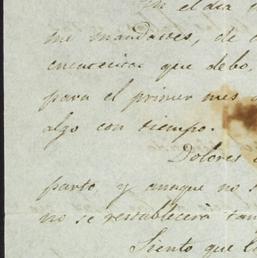 En el dia
me mandases, de
que debo,
para el primer mes
algo con tiempo.
Dolores
parto y aunque no s
no se restablecerá tan
Siento que l